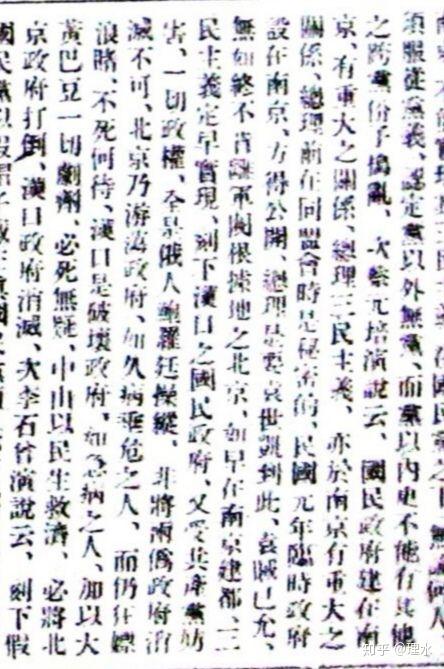 須服從黨義、認定黨以外無黨、而黨以內更不能有其他
之跨黨份子搗亂、次蔡元培演說云、國民政府建在南
京、有重大之關係、總理三民主義、亦於南京有重大之
關係、總理前在同盟會時是秘密的、民國元年臨時政府
設在南京、方得公開、總理是要袁世凱到此、袁賊已允、
無如終不肯離軍閥根據地之北京、如早在南京建都、三
民主義定早實現、刻下漢口之國民政府、又受共產黨妨
害、一切政權、全是俄人鮑羅廷操縱、非將兩僞政府消
滅不可、北京乃游政府、如久病垂危之人、而仍狂嫖
浪賭、不死何待、漢口是破壞政府、如急病之人、加以大
黃巴豆一切劇劑、必死無疑、中山以民生救濟、必將北
京政府打倒、漢口政府消滅、次李石曾演說云、刻下假
知乎 @理水